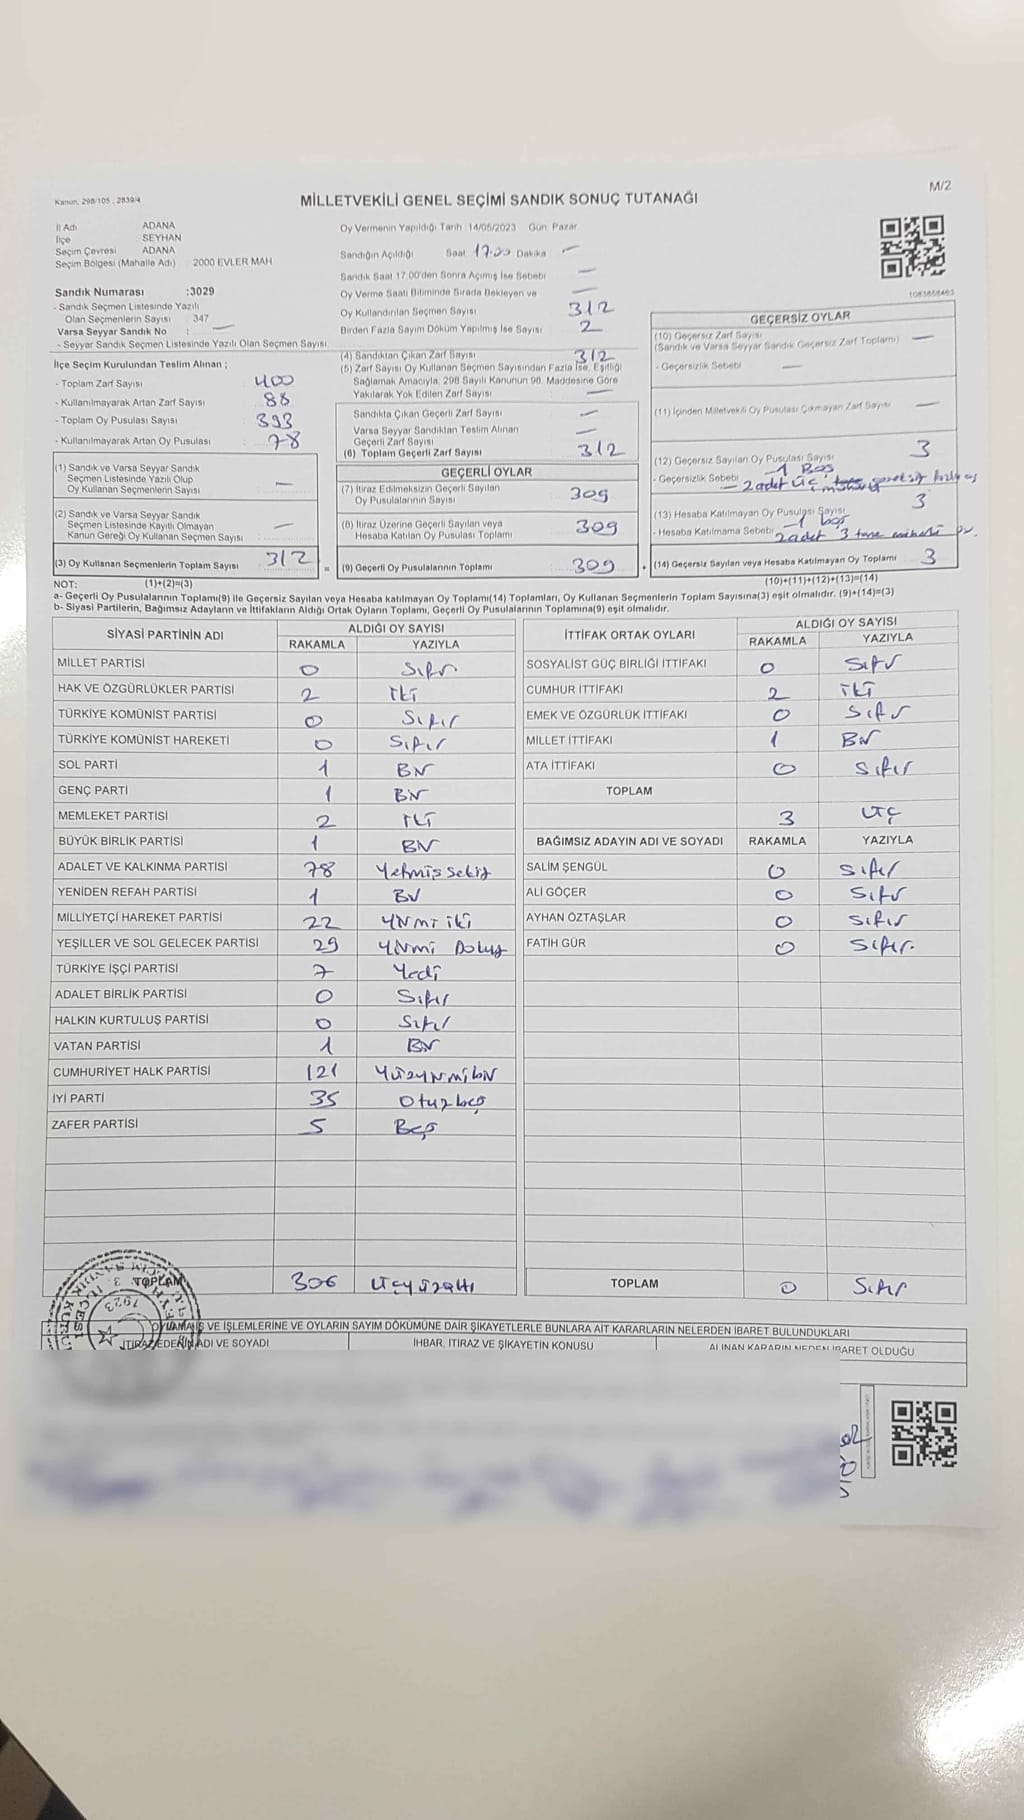 Kanun, 298/105 , 2839/4
MİLLETVEKİLİ GENEL SEÇİMİ SANDIK SONUÇ TUTANAĞI
M/2
İl Adı ADANA
İlçe SEYHAN
Seçim Çevresi ADANA
Seçim Bölgesi (Mahalle Adı) 2000 EVLER MAH
Sandık Numarası :3029
- Sandık Seçmen Listesinde Yazılı
Olan Seçmenlerin Sayısı 347
Varsa Seyyar Sandık No : —
- Seyyar Sandık Seçmen Listesinde Yazılı Olan Seçmen Sayısı
İlçe Seçim Kurulundan Teslim Alınan ;
- Toplam Zarf Sayısı : 400
- Kullanılmayarak Artan Zarf Sayısı : 88
- Toplam Oy Pusulası Sayısı : 393
- Kullanılmayarak Artan Oy Pusulası : 78
(1) Sandık ve Varsa Seyyar Sandık
Seçmen Listesinde Yazılı Olup
Oy Kullanan Seçmenlerin Sayısı —
(2) Sandık ve Varsa Seyyar Sandık
Seçmen Listesinde Kayıtlı Olmayan
Kanun Gereği Oy Kullanan Seçmen Sayısı —
(3) Oy Kullanan Seçmenlerin Toplam Sayısı 312
Oy Vermenin Yapıldığı Tarih :14/05/2023 Gün: Pazar
Sandığın Açıldığı Saat 17.00 Dakika —
Sandık Saat 17.00'den Sonra Açımış İse Sebebi —
Oy Verme Saati Bitiminde Sırada Bekleyen ve —
Oy Kullandırılan Seçmen Sayısı 312
Birden Fazla Sayım Döküm Yapılmış İse Sayısı 2
(4) Sandıktan Çıkan Zarf Sayısı 312
(5) Zarf Sayısı Oy Kullanan Seçmen Sayısından Fazla İse, Eşitliği
Sağlamak Amacıyla, 298 Sayılı Kanunun 98. Maddesine Göre
Yakılarak Yok Edilen Zarf Sayısı —
Sandıkta Çıkan Geçerli Zarf Sayısı —
Varsa Seyyar Sandıktan Teslim Alınan
Geçerli Zarf Sayısı —
(6) Toplam Geçerli Zarf Sayısı 312
GEÇERLİ OYLAR
(7) İtiraz Edilmeksizin Geçerli Sayılan
Oy Pusulalarının Sayısı 309
(8) İtiraz Üzerine Geçerli Sayılan veya
Hesaba Katılan Oy Pusulası Toplamı 309
= (9) Geçerli Oy Pusulalarının Toplamı 309 +
1083858463
GEÇERSİZ OYLAR
(10) Geçersiz Zarf Sayısı
(Sandık ve Varsa Seyyar Sandık Geçersiz Zarf Toplamı) —
- Geçersizlik Sebebi —
(11) İçinden Milletvekili Oy Pusulası Çıkmayan Zarf Sayısı —
(12) Geçersiz Sayılan Oy Pusulası Sayısı 3
- Geçersizlik Sebebi — 1 Boş
— 2 adet üç
(13) Hesaba Katılmayan Oy Pusulası Sayısı 3
- Hesaba Katılmama Sebebi — 1 boş
2 adet 3 tane mühürlü
(14) Geçersiz Sayılan veya Hesaba Katılmayan Oy Toplamı 3
(10)+(11)+(12)+(13)=(14)
NOT: (1)+(2)=(3)
a- Geçerli Oy Pusulalarının Toplamı(9) ile Geçersiz Sayılan veya Hesaba katılmayan Oy Toplamı(14) Toplamları, Oy Kullanan Seçmenlerin Toplam Sayısına(3) eşit olmalıdır. (9)+(14)=(3)
b- Siyasi Partilerin, Bağımsız Adayların ve İttifakların Aldığı Ortak Oyların Toplamı, Geçerli Oy Pusulalarının Toplamına(9) eşit olmalıdır.
SİYASİ PARTİNİN ADI ALDIĞI OY SAYISI
RAKAMLA YAZIYLA
MİLLET PARTİSİ 0 Sıfır
HAK VE ÖZGÜRLÜKLER PARTİSİ 2 İki
TÜRKİYE KOMÜNİST PARTİSİ 0 Sıfır
TÜRKİYE KOMÜNİST HAREKETİ 0 Sıfır
SOL PARTİ 1 Bir
GENÇ PARTİ 1 Bir
MEMLEKET PARTİSİ 2 İki
BÜYÜK BİRLİK PARTİSİ 1 Bir
ADALET VE KALKINMA PARTİSİ 78 Yetmiş Sekiz
YENİDEN REFAH PARTİSİ 1 Bir
MİLLİYETÇİ HAREKET PARTİSİ 22 Yirmi iki
YEŞİLLER VE SOL GELECEK PARTİSİ 29 Yirmi Dokuz
TÜRKİYE İŞÇİ PARTİSİ 7 Yedi
ADALET BİRLİK PARTİSİ 0 Sıfır
HALKIN KURTULUŞ PARTİSİ 0 Sıfır
VATAN PARTİSİ 1 Bir
CUMHURİYET HALK PARTİSİ 121 Yüzyirmibir
İYİ PARTİ 35 Otuzbeş
ZAFER PARTİSİ 5 Beş
TOPLAM 306 Üçyüzaltı
İTTİFAK ORTAK OYLARI ALDIĞI OY SAYISI
RAKAMLA YAZIYLA
SOSYALİST GÜÇ BİRLİĞİ İTTİFAKI 0 Sıfır
CUMHUR İTTİFAKI 2 İki
EMEK VE ÖZGÜRLÜK İTTİFAKI 0 Sıfır
MİLLET İTTİFAKI 1 Bir
ATA İTTİFAKI 0 Sıfır
TOPLAM
3 Üç
BAĞIMSIZ ADAYIN ADI VE SOYADI RAKAMLA YAZIYLA
SALİM ŞENGÜL 0 Sıfır
ALİ GÖÇER 0 Sıfır
AYHAN ÖZTAŞLAR 0 Sıfır
FATİH GÜR 0 Sıfır
TOPLAM 0 Sıfır
1923
OYLAMA İŞ VE İŞLEMLERİNE VE OYLARIN SAYIM DÖKÜMÜNE DAİR ŞİKAYETLERLE BUNLARA AİT KARARLARIN NELERDEN İBARET BULUNDUKLARI
İTİRAZ EDENİN ADI VE SOYADI İHBAR, İTİRAZ VE ŞİKAYETİN KONUSU ALINAN KARARIN NEDEN İBARET OLDUĞU